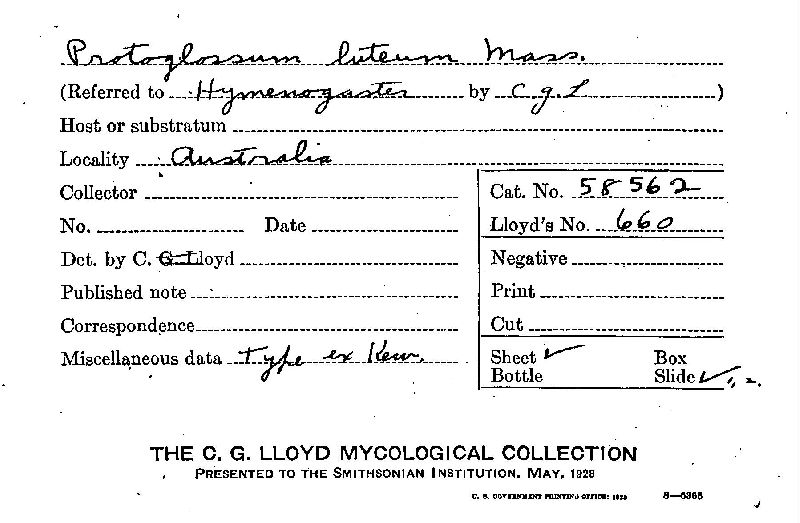 Protoglossum luteum Mass.
(Referred to Hymenogaster by C G L)
Host or substratum
Locality Australia
Collector
Cat. No. 58562
No. Date
Lloyd's No. 660
Det. by C. G. Lloyd
Negative
Published note
Print
Correspondence
Cut
Miscellaneous data Type ex Kew.
Sheet ✓ Box
Bottle Slide ✓ 1, 2.
THE C. G. LLOYD MYCOLOGICAL COLLECTION
PRESENTED TO THE SMITHSONIAN INSTITUTION, MAY, 1928
U. S. GOVERNMENT PRINTING OFFICE: 1928 8—6368